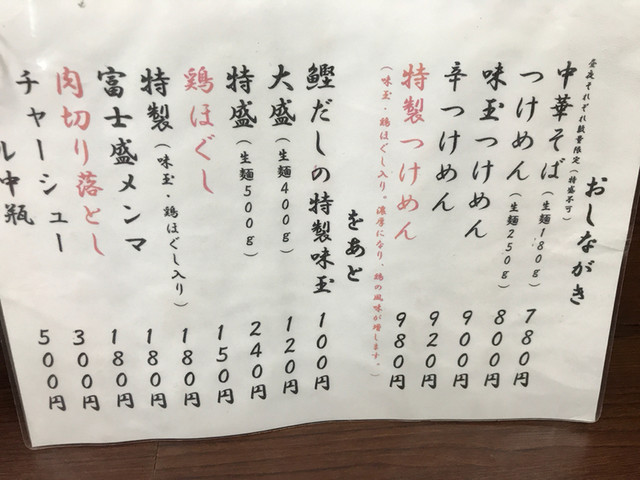 おしながき
昼夜それぞれ数量限定(特盛不可)
中華そば(生麺180g) 780円
つけめん(生麺250g) 800円
味玉つけめん 900円
辛つけめん 920円
特製つけめん 980円
(味玉・鶏ほぐし入り。濃厚になり、鶏の風味が増します。)
をあと
鰹だしの特製味玉 100円
大盛(生麺400g) 120円
特盛(生麺500g) 240円
鶏ほぐし 150円
特製(味玉・鶏ほぐし入り) 180円
富士盛メンマ 180円
肉切り落とし 180円
チャーシュー 300円
ル中瓶 500円